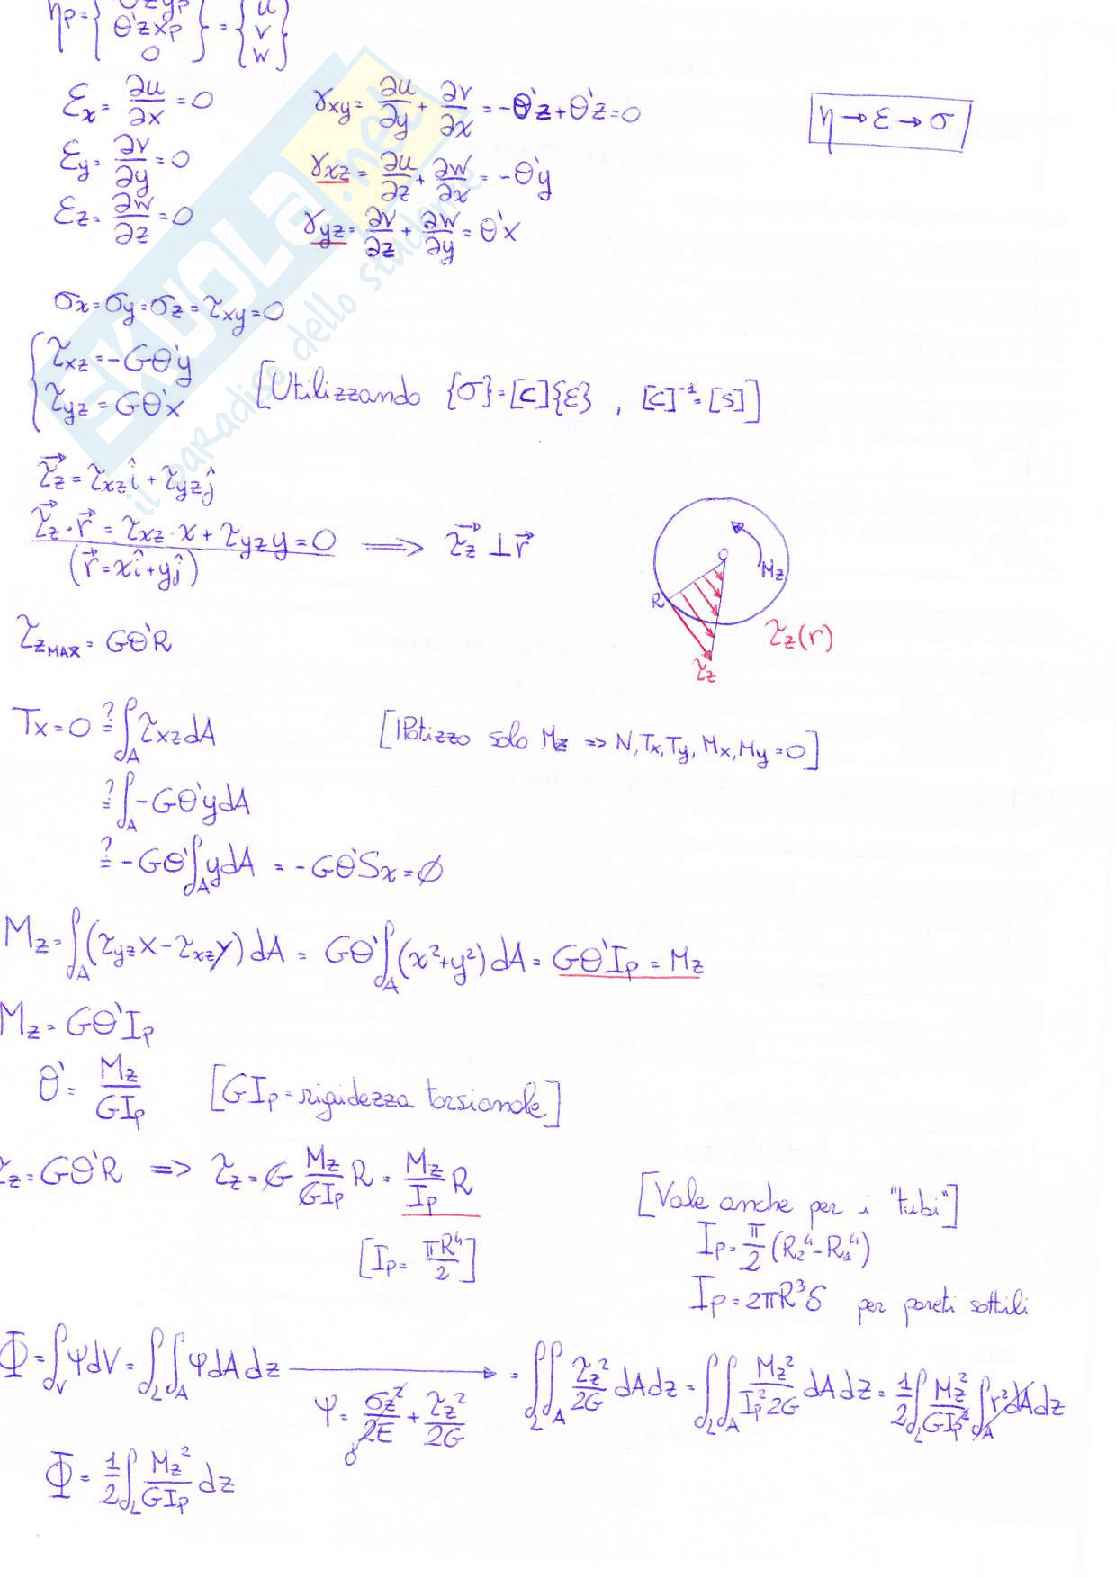 ηp = { -θ'zyp θ'zxp 0 } = { u v w }
εx = ∂u/∂x = 0
γxy = ∂u/∂y + ∂v/∂x = -θ'z + θ'z = 0
η → ε → σ
εy = ∂v/∂y = 0
γxz = ∂u/∂z + ∂w/∂x = -θ'y
εz = ∂w/∂z = 0
γyz = ∂v/∂z + ∂w/∂y = θ'x
SKUOLA.net
il paradiso dello studente
σx = σy = σz = τxy = 0
{ τxz = -Gθ'y
τyz = Gθ'x
[Utilizzando {σ} = [C]{ε} , [C]⁻¹ = [S]]
τz = τxz î + τyz ĵ
τz · r = τxz · x + τyz y = 0 ⟹ τz ⊥ r
(r = xî + yĵ)
O
Mz
R
τz(r)
τz
τz MAX = Gθ'R
Tx = 0 ?= ∫A τxz dA
[IPotizzo solo Mz => N, Tx, Ty, Mx, My = 0]
?= ∫A -Gθ'y dA
?= -Gθ' ∫A y dA = -Gθ'Sx = Ø
Mz = ∫A (τyz x - τxz y) dA = Gθ' ∫A (x² + y²) dA = Gθ'Ip = Mz
Mz = Gθ'Ip
θ' = Mz/GIp
[GIp = rigidezza torsionale]
τz = Gθ'R => τz = G Mz/GIp R = Mz/Ip R
[Ip = πR⁴/2]
[Vale anche per i "tubi"]
Ip = π/2 (R₂⁴ - R₁⁴)
Ip = 2πR³δ per pareti sottili
Φ = ∫V φ dV = ∫L ∫A φ dA dz → = ∫L ∫A τz²/2G dA dz = ∫L ∫A Mz²/Ip²2G dA dz = 1/2 ∫L Mz²/GIp² ∫A r² dA dz
φ = σz²/2E + τz²/2G
0
Φ = 1/2 ∫L Mz²/GIp dz